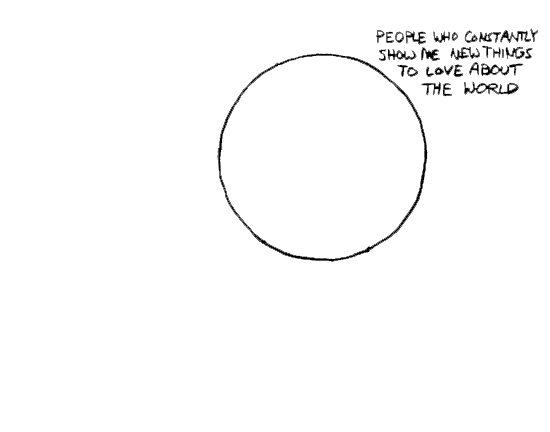 PEOPLE WHO CONSTANTLY
SHOW ME NEW THINGS
TO LOVE ABOUT
THE WORLD